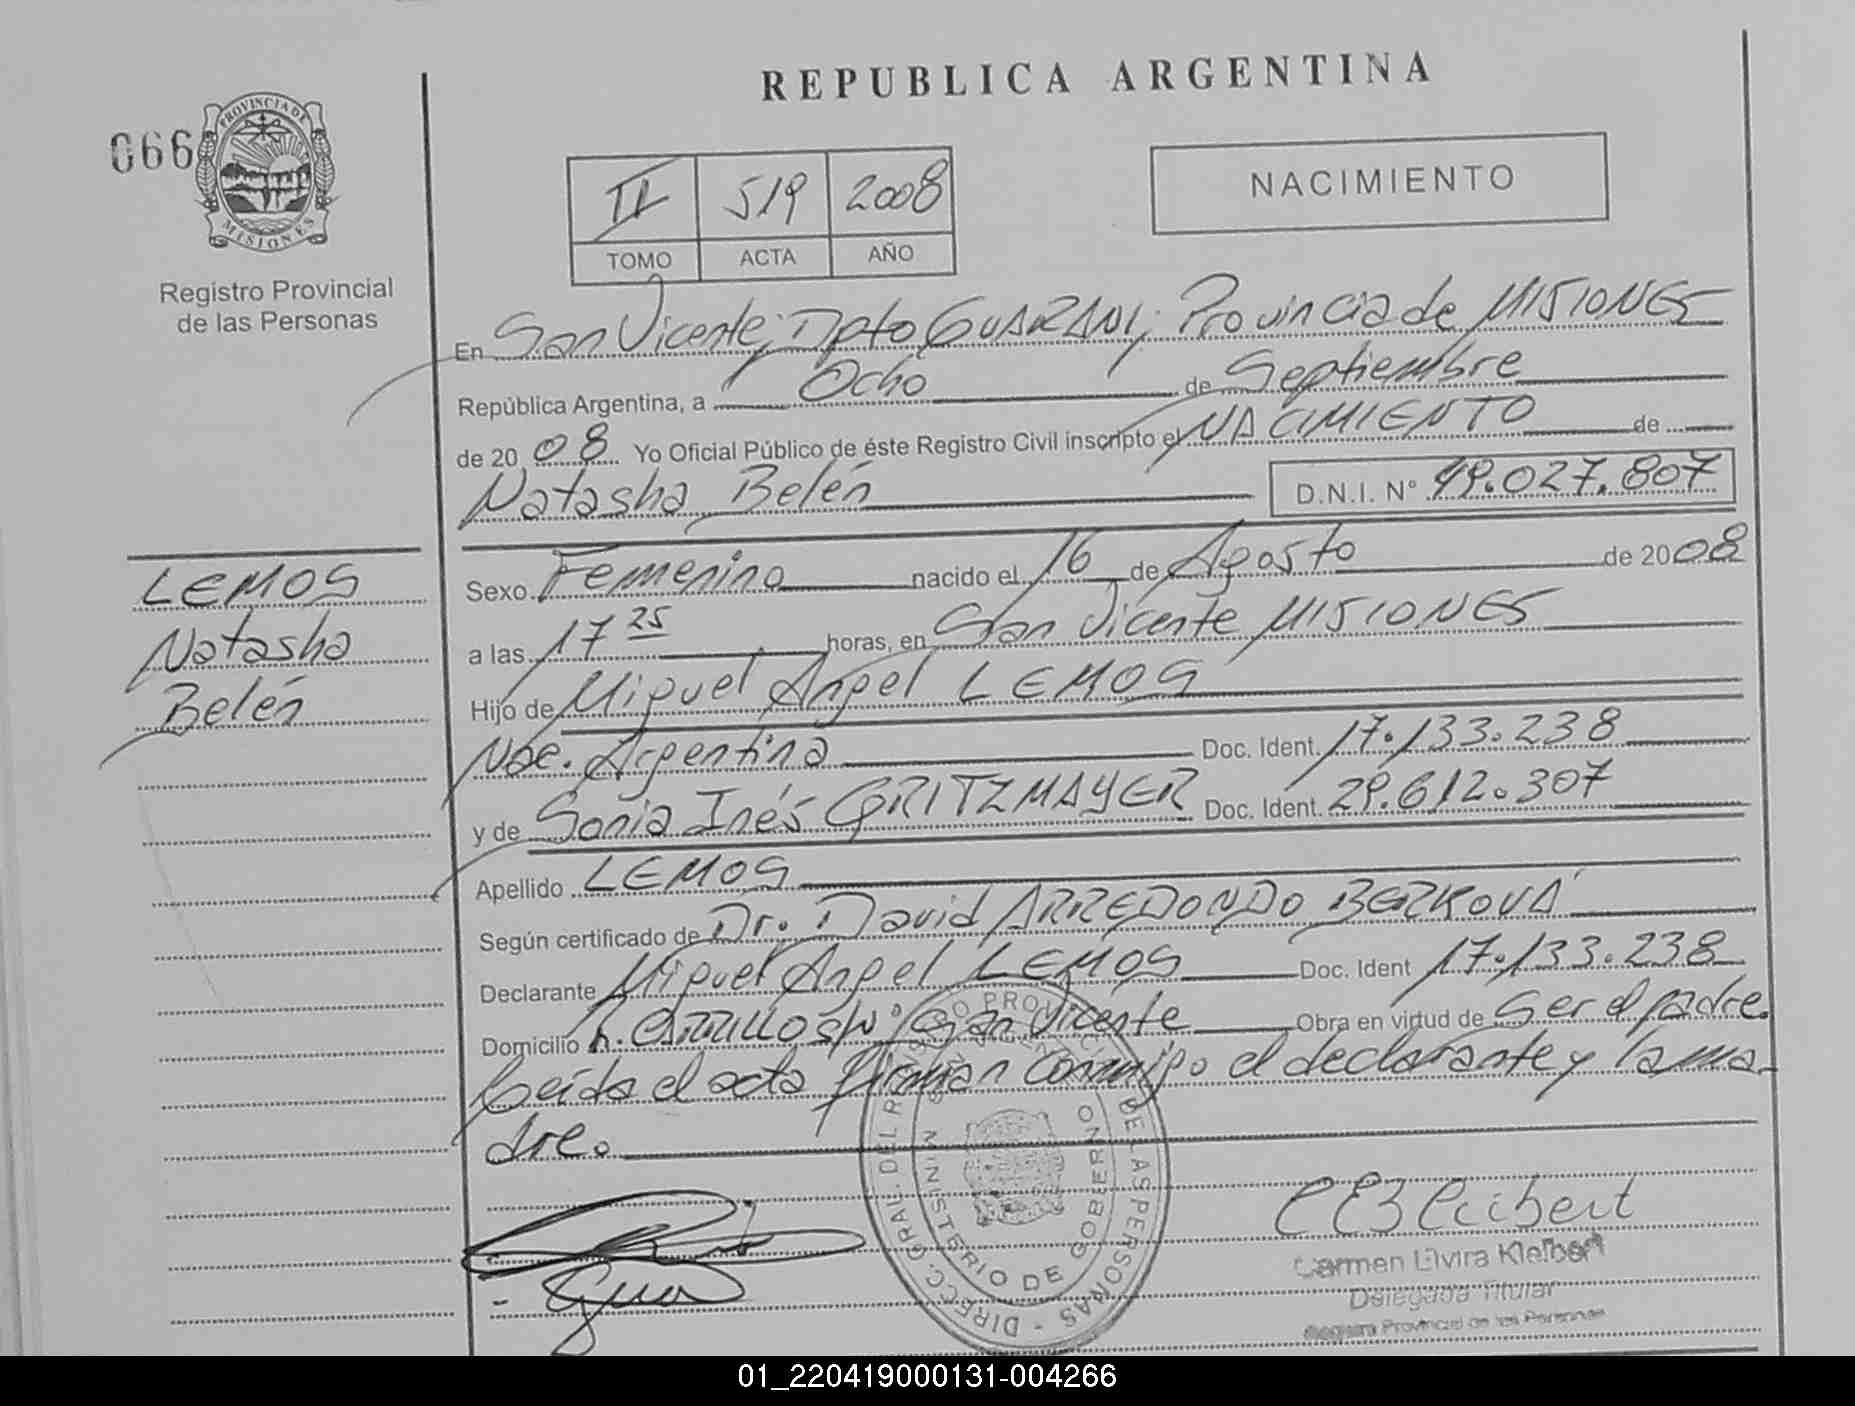 REPUBLICA ARGENTINA
066
PROVINCIA DE MISIONES
Registro Provincial
de las Personas
II 519 2008
TOMO ACTA AÑO
NACIMIENTO
En San Vicente, Dpto GUARANI, Provincia de MISIONES
República Argentina, a Ocho de Septiembre
de 2008 Yo Oficial Público de éste Registro Civil inscripto el NACIMIENTO de
Natasha Belén D.N.I. Nº 49.027.807
LEMOS
Natasha
Belén
Sexo Femenino nacido el 16 de Agosto de 2008
a las 17 25 horas, en San Vicente MISIONES
Hijo de Miguel Angel LEMOS
Nac. Argentina Doc. Ident. 17.133.238
y de Sonia Inés GRITZMAYER Doc. Ident. 29.612.307
Apellido LEMOS
Según certificado de Dr. David ARREDONDO BERKOVA
Declarante Miguel Angel LEMOS Doc. Ident 17.133.238
Domicilio San Vicente Obra en virtud de Ser el padre.
Leída el acta firman conmigo el declarante y la ma-
dre.
DIRECC. GRAL. DEL REGISTRO PROVINCIAL DE LAS PERSONAS -
MINISTERIO DE GOBIERNO
Carmen Elvira Kleibert
Delegada Titular
Registro Provincial de las Personas
01_220419000131-004266